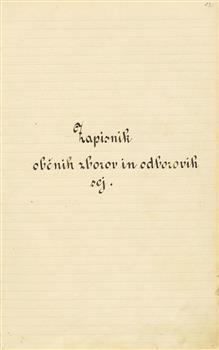 Zapisnik
občnih zborov in odborovih
sej.